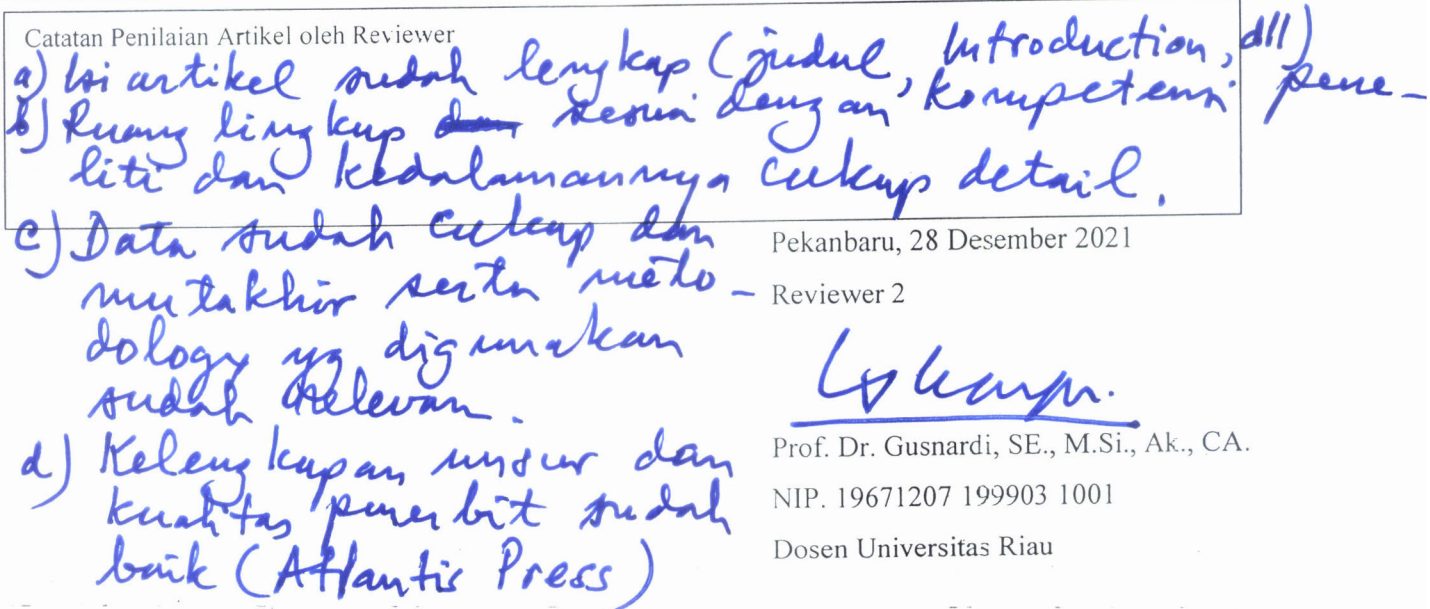 Catatan Penilaian Artikel oleh Reviewer
a) Isi artikel sudah lengkap (judul, Introduction, dll)
b) Ruang lingkup sesuai dengan kompetensi pene-
liti dan kedalamannya cukup detail.
c) Data sudah cukup dan
mutakhir serta meto-
dology yg digunakan
sudah relevan.
d) Kelengkapan unsur dan
kualitas penerbit sudah
baik (Atlantis Press)
Pekanbaru, 28 Desember 2021
Reviewer 2
Prof. Dr. Gusnardi, SE., M.Si., Ak., CA.
NIP. 19671207 199903 1001
Dosen Universitas Riau